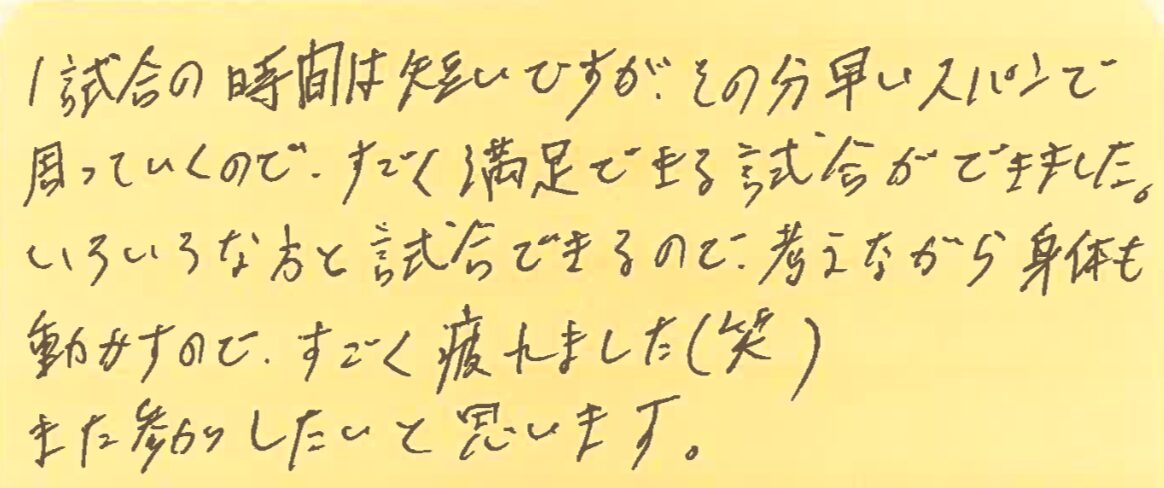 1試合の時間は短いですが、その分早いスパンで
周っていくので、すごく満足できる試合ができました。
いろいろな方と試合できるので、考えながら身体も
動かすので、すごく疲れました(笑)
また参加したいと思います。